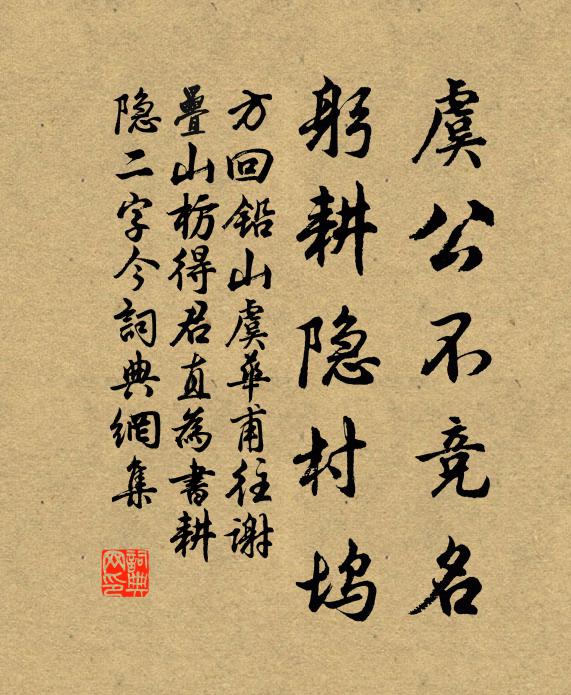 虞公不竞名
躬耕隐村坞
方回铅山虞华甫往谢
疊山枋得君直為書耕
隐二字今詞典網集
詞典网印